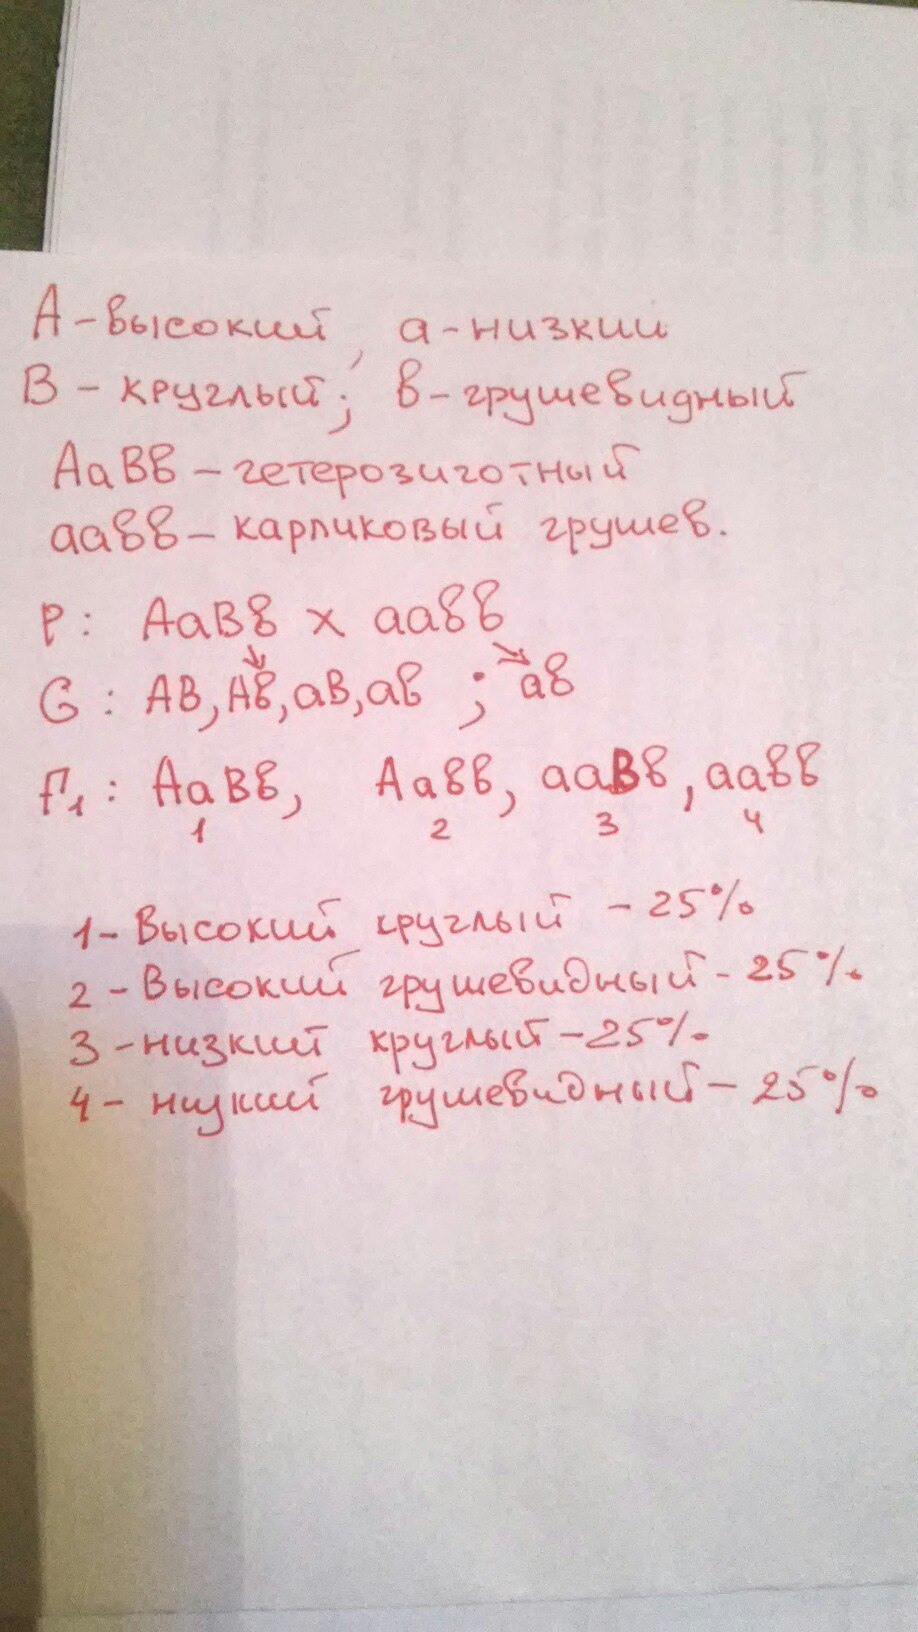 А - высокий, а - низкий
В - круглый; в - грушевидный
АаВв - гетерозиготный
аавв - карликовый грушев.
Р: АаВв х аавв
G: АВ, Ав, аВ, ав ; ав
F₁: АаВв, Аавв, ааВв, аавв
1 2 3 4
1 - Высокий круглый - 25%
2 - Высокий грушевидный - 25%
3 - низкий круглый - 25%
4 - низкий грушевидный - 25%